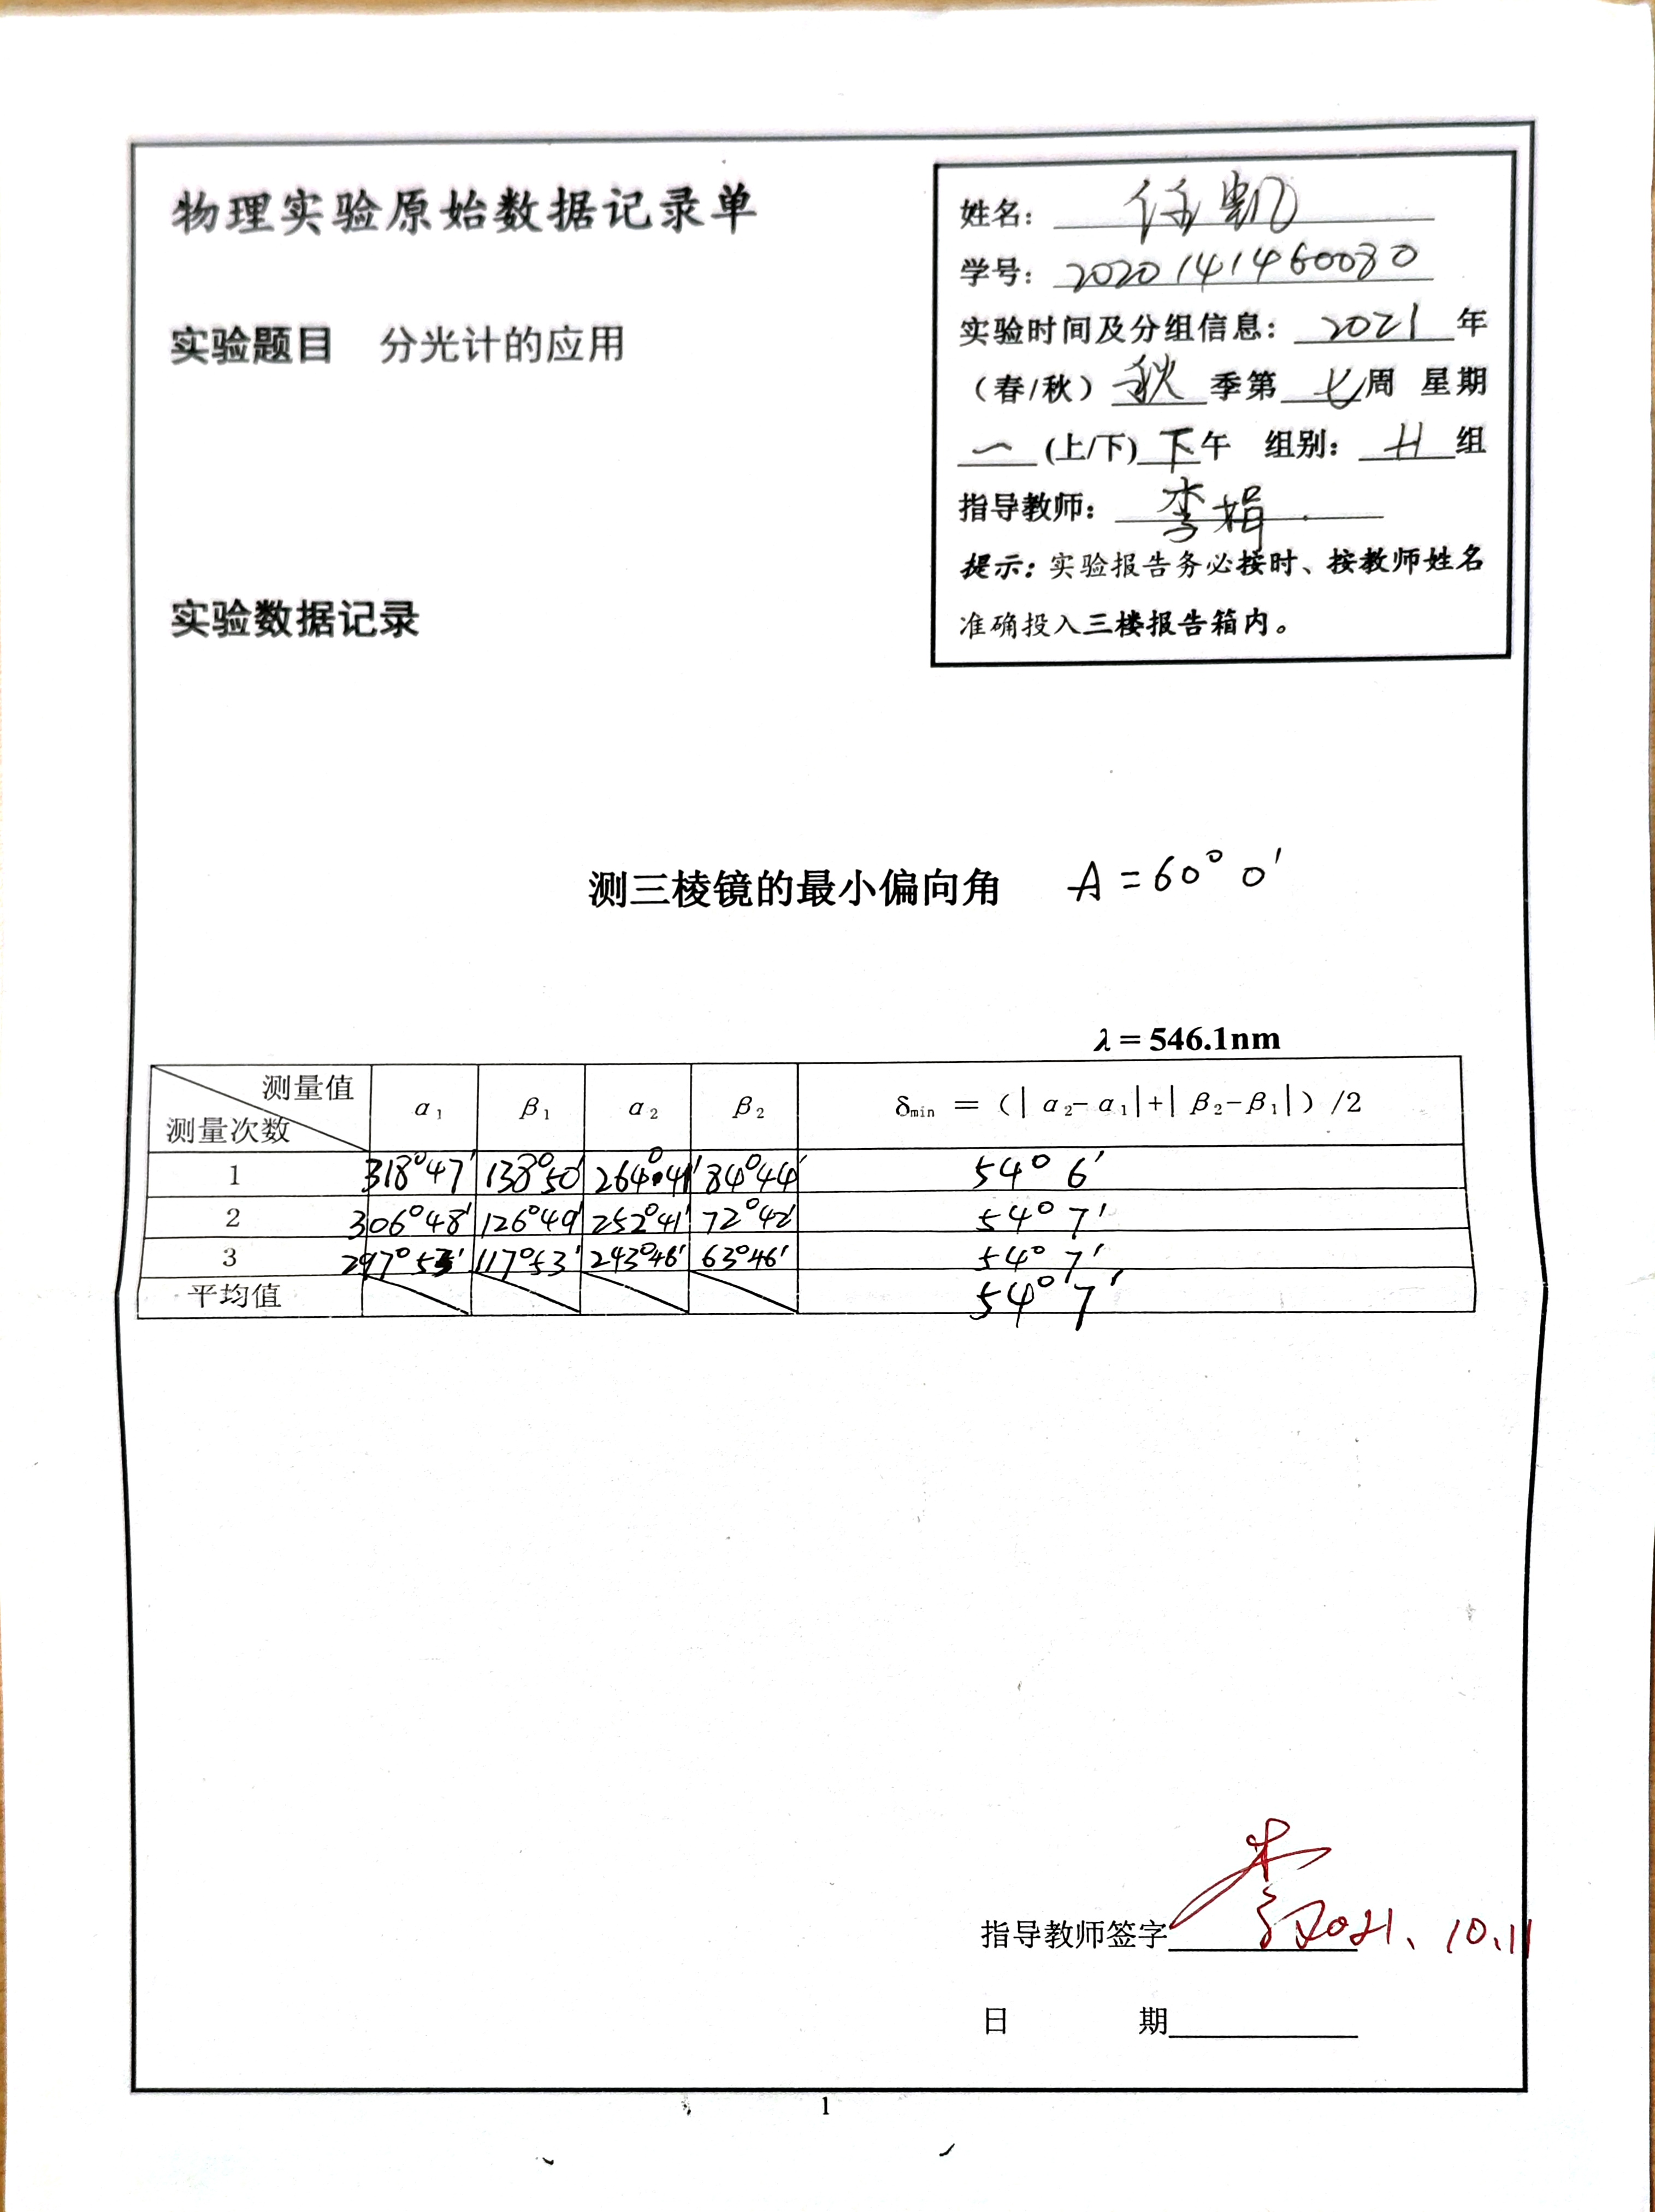 物理实验原始数据记录单
实验题目 分光计的应用
实验数据记录
姓名：任凯
学号：2020141460080
实验时间及分组信息：2021年
（春/秋）秋季第七周 星期
一(上/下)下午 组别：H组
指导教师：李娟
提示：实验报告务必按时、按教师姓名
准确投入三楼报告箱内。
测三棱镜的最小偏向角 A=60°0′
λ = 546.1nm
测量值
测量次数
α1 β1 α2 β2 δmin ＝（｜α2-α1｜+｜β2-β1｜）/2
1 318°47′ 138°50′ 264°41′ 84°44′ 54°6′
2 306°48′ 126°49′ 252°41′ 72°42′ 54°7′
3 297°53′ 117°53′ 243°46′ 63°46′ 54°7′
平均值 54°7′
指导教师签字 李 2021、10、11
日 期
1